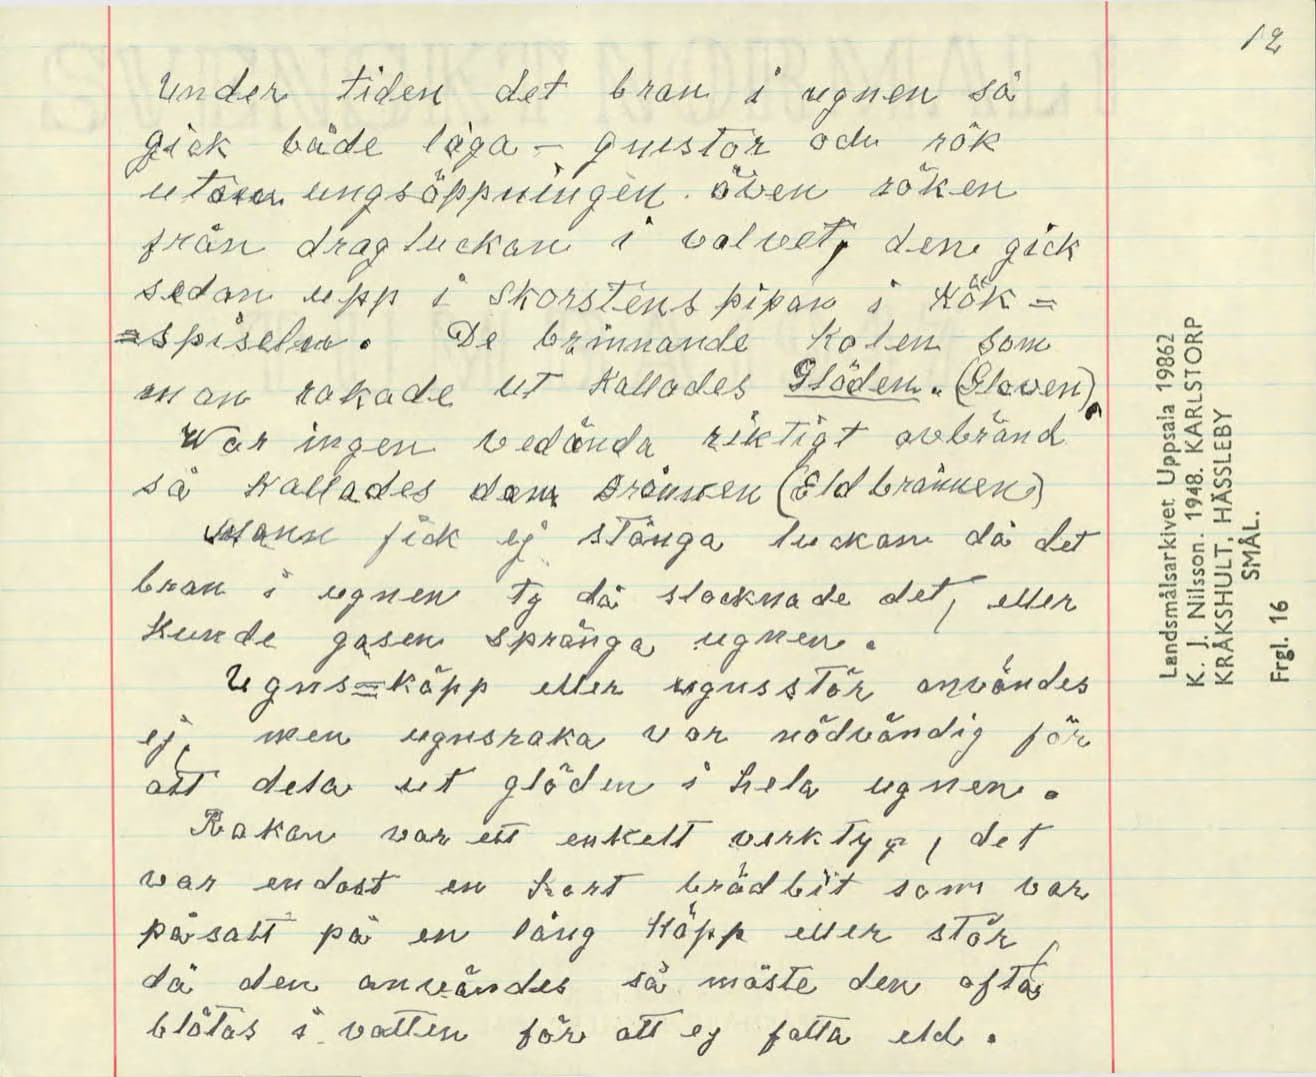 12
Under tiden det bran i ugnen så
gick både låga – gnistor och rök
utom ungsöppningen. även röken
från dragluckan i valvet, den gick
sedan upp i skorstenspipan i Kök=
=spiseln. De brinnande kolen som
man rakade ut kallades Glöden. (Gloven).
War ingen vedända riktigt avbränd
så kallades dom Bränken (Eldbränken)
Mann fick ej stänga luckan då det
bran i ugnen ty då slocknade det, eller
kunde gasen spränga ugnen.
Ugns=käpp eller ugnsstör användes
ej, men ugnsraka var nödvändig för
att dela ut glöden i hela ugnen.
Rakan var ett enkelt verktyg, det
var endast en kort brädbit som var
påsatt på en lång käpp eller stör,
då den användes så måste den ofta
blötas i vatten för att ej fatta eld.
Landsmålsarkivet Uppsala 19862
K. J. Nilsson. 1948. KARLSTORP
KRÅKSHULT, HÄSSLEBY
SMÅL.
Frgl. 16